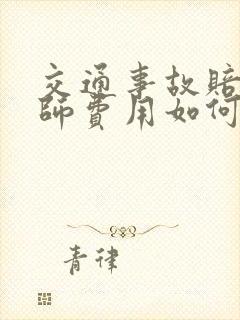 交通事故赔
师费用如何
青律